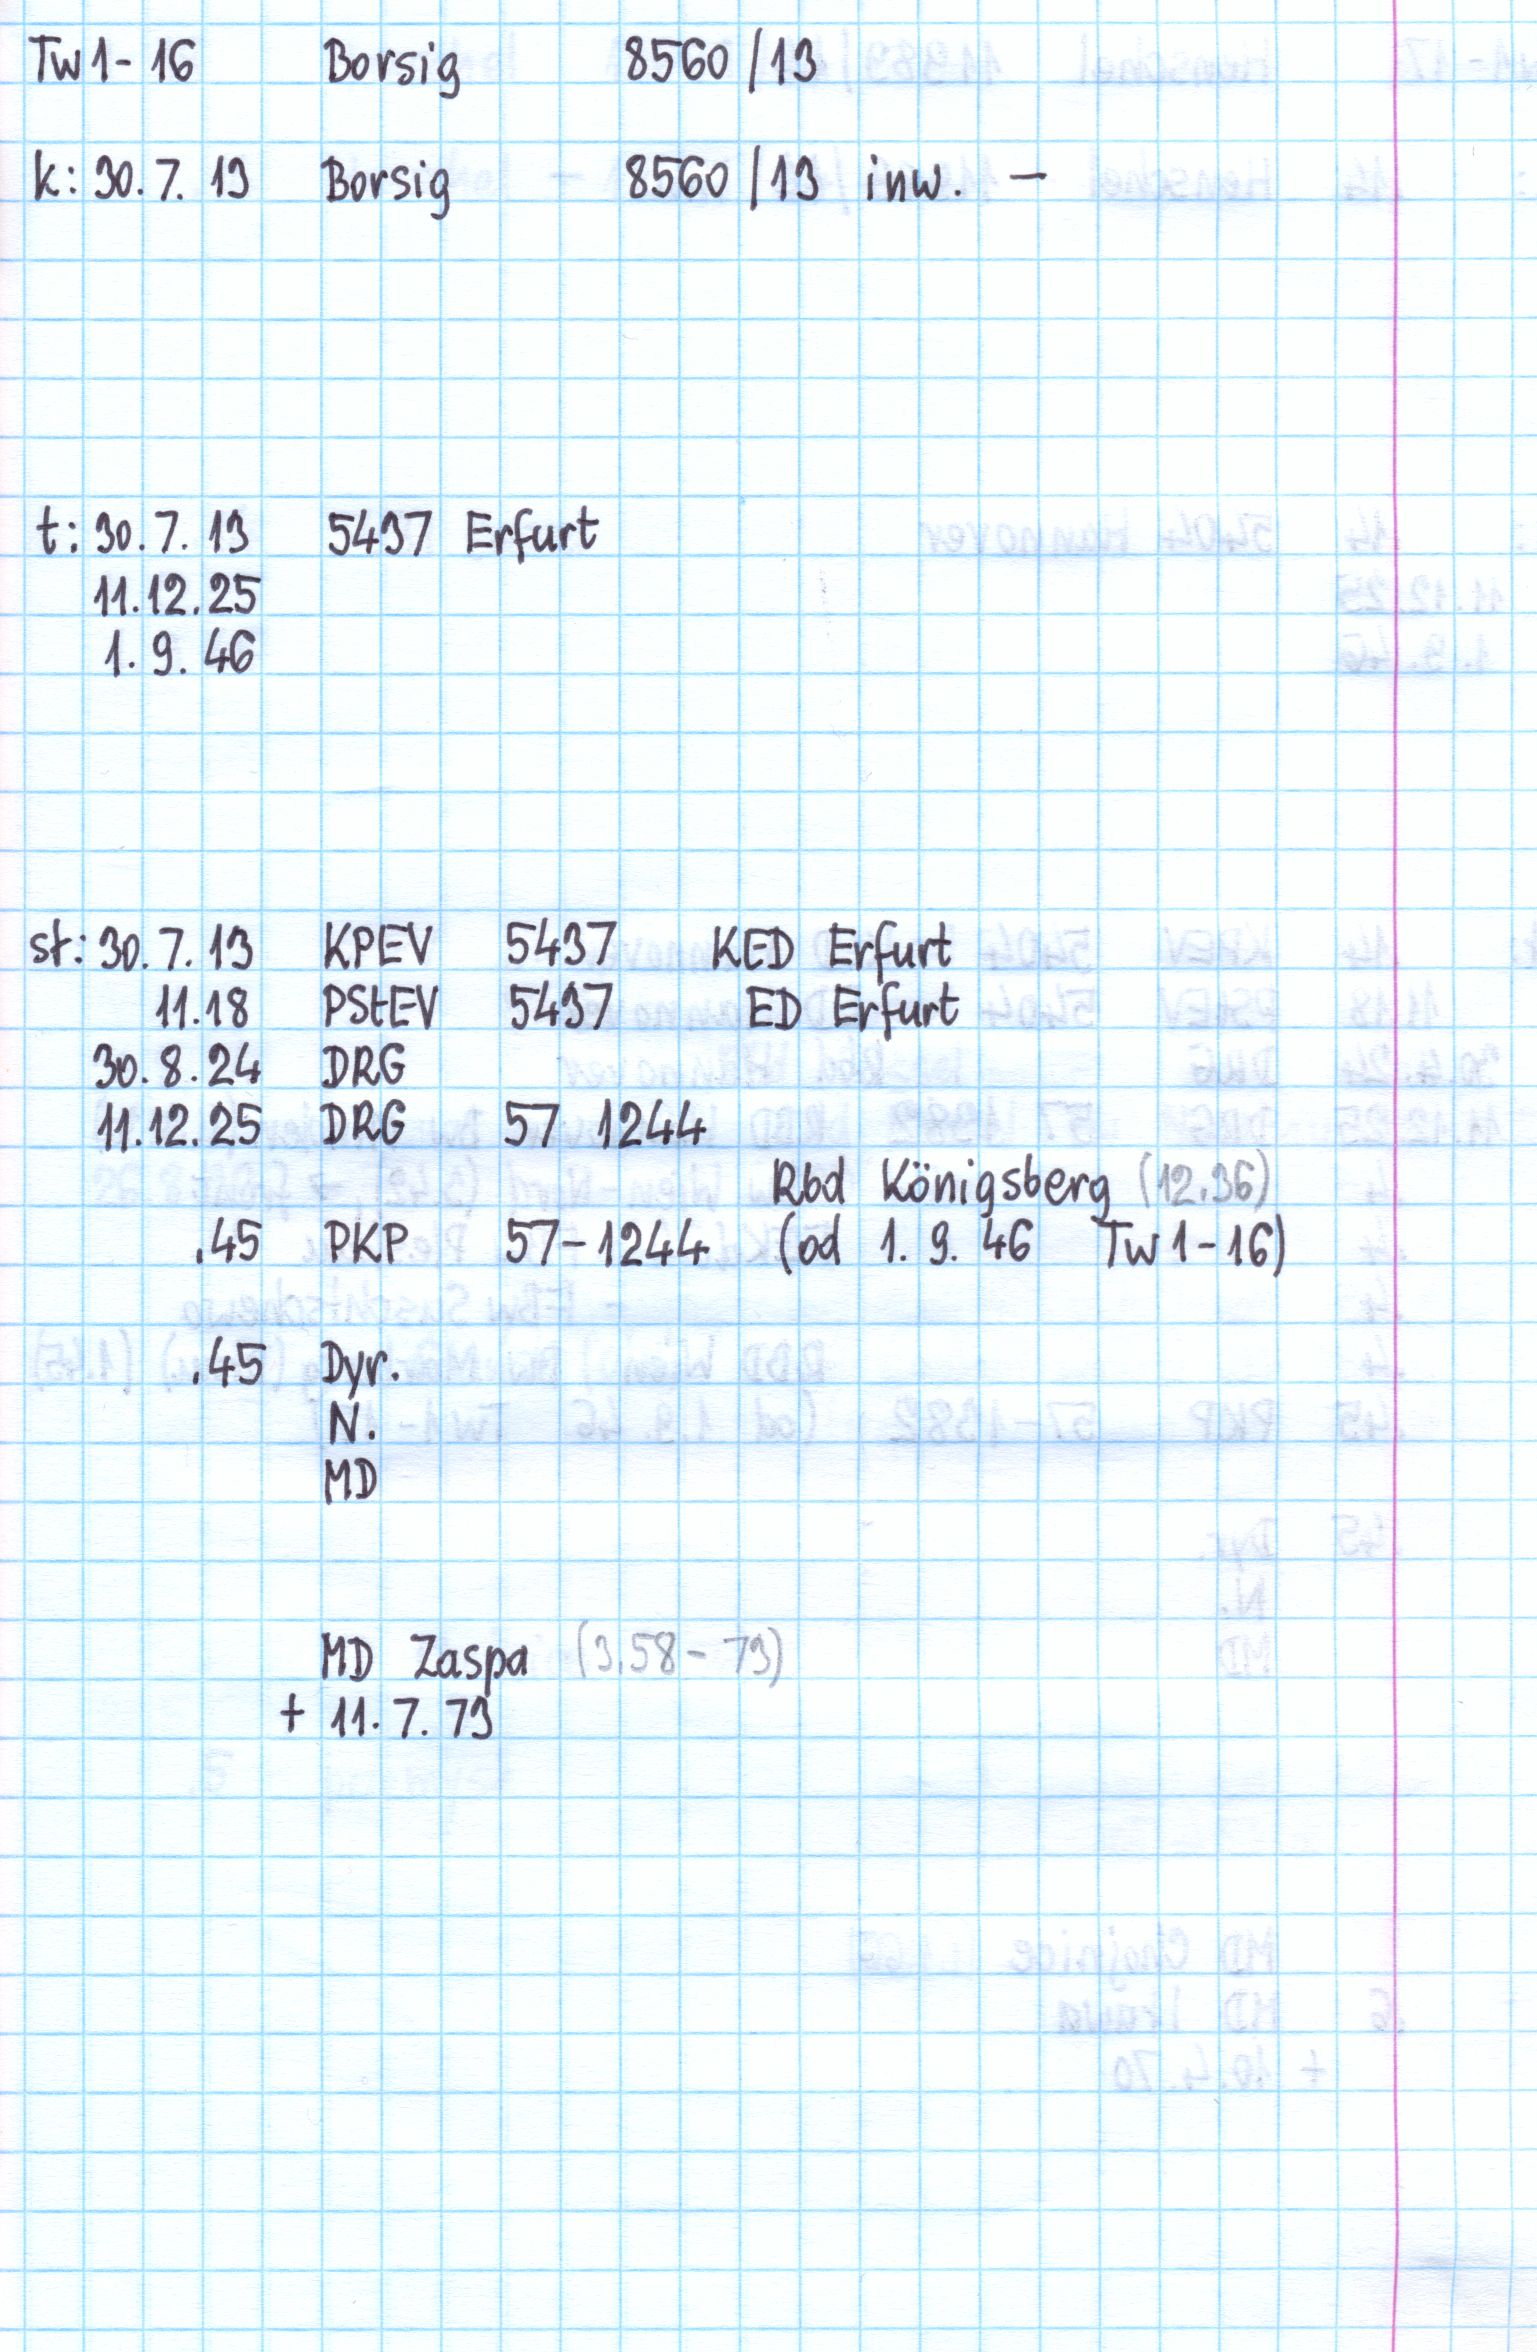 Tw1-16 Borsig 8560/13
k: 30.7.13 Borsig 8560/13 inw. –
t: 30.7.13 5437 Erfurt
11.12.25
1.9.46
st: 30.7.13 KPEV 5437 KED Erfurt
11.18 PStEV 5437 ED Erfurt
30.8.24 DRG
11.12.25 DRG 57 1244
Rbd Königsberg (12.36)
.45 PKP 57-1244 (od 1.9.46 Tw1-16)
.45 Dyr.
N.
MD
MD Zaspa (3.58-73)
+ 11.7.73